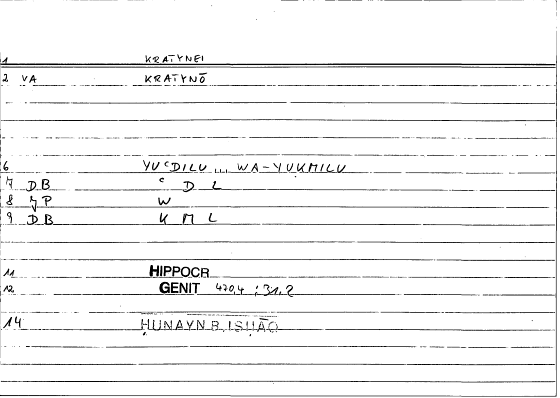 1 KRATYNEI
2 VA KRATYNŌ
6 YUʿDILU ... WA-YUKMILU
7 DB ʿ D L
8 JP W
9 DB K M L
11 HIPPOCR
12 GENIT 470,4 ; 31,2
14 ḤUNAYN B. ISḤĀQ